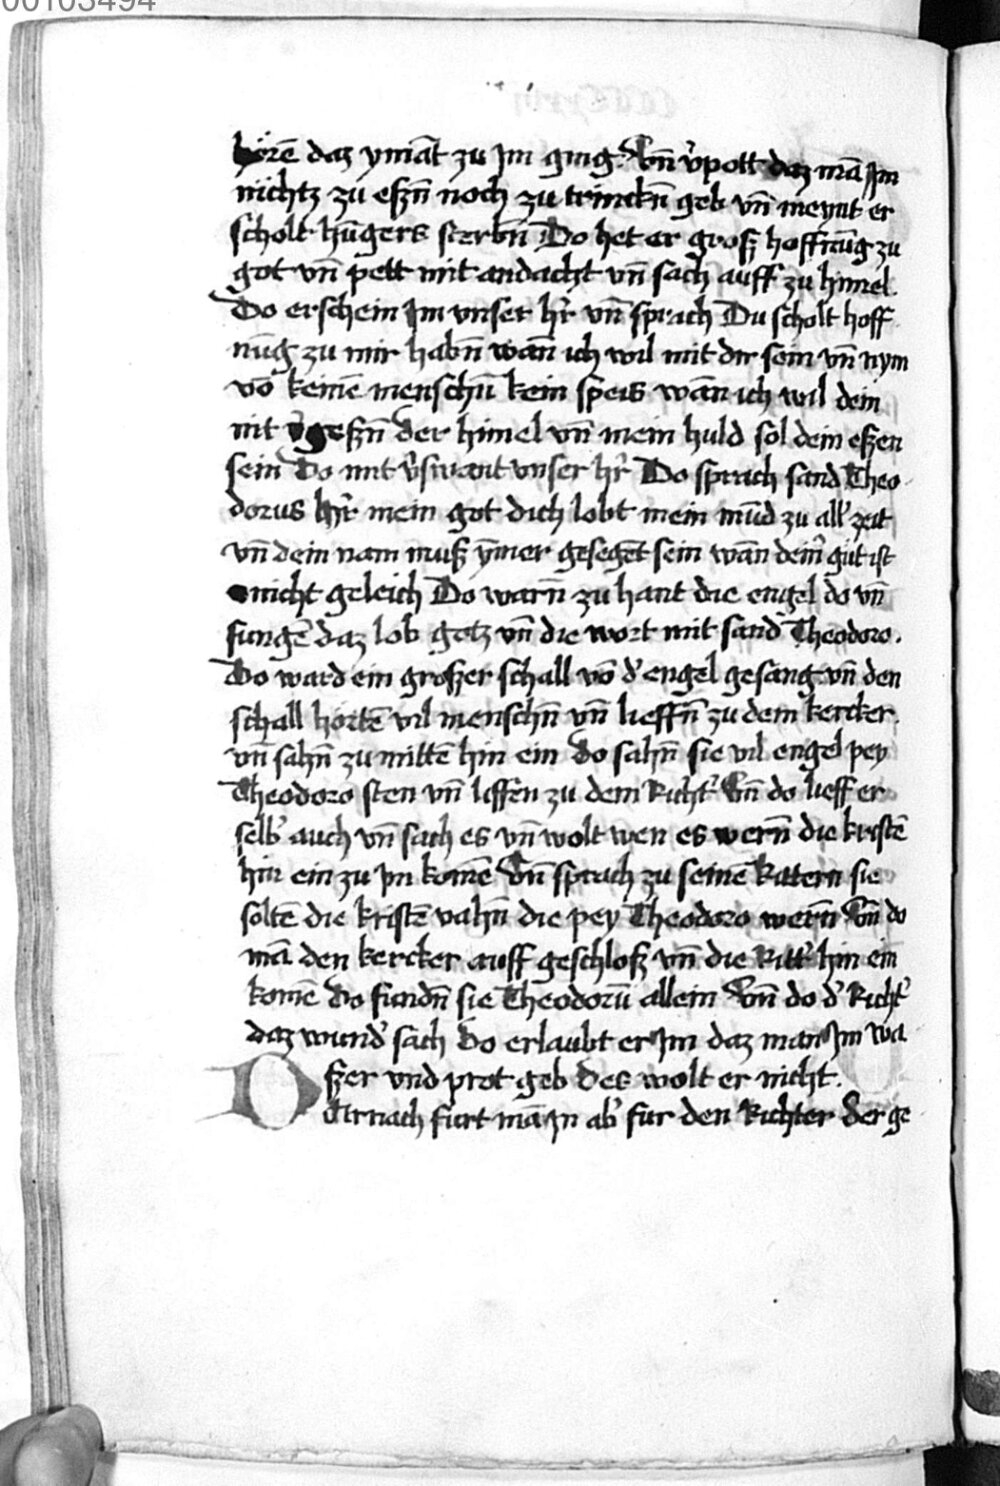 00103494
hörē daz ymāt zu Im ging. Vn̄ v̓pott daz mā Im
nichtz zu eßn̄ noch zu trinckn̄ geb vn̄ meynt er
scholt hūgers sterbn̄ Do het er groß hoffnūg zu
got vn̄ pett mit andacht vn̄ sach auff zu himel.
Do erschein Im vnser hr̓ vn̄ sprach Du scholt hoff
nūg zu mir habn̄ wān ich wil mit dir sein vn̄ nym
vō keinē menschn̄ kein speis wān ich wil dein
nit v̓geßn̄ der himel vn̄ mein huld sol dein eßen
sein Do mit v̓swant vnser hr̓ Do sprach sand Theo
dorus hr̓ mein got dich lobt mein mūd zu all̓ zeit
vn̄ dein nam muß ymer gesegēt sein wān dein̓ gut ist
nicht geleich Do warn̄ zu hant die engel do vn̄
sungē daz lob gotz vn̄ die wort mit sand Theodoro.
Do ward ein großer schall vō d̓ engel gesang vn̄ den
schall hortē vil menschn̄ vn̄ lieffn̄ zu dem kercker.
vn̄ sahn̄ zu mittē hin ein do sahn̄ sie vil engel pey
Theodoro sten vn̄ liffen zu dem Richt̓ Vn̄ do lieff er
selb̓ auch vn̄ sach es vn̄ wolt wen es wern̄ die kristē
hin ein zu yn komē Vn̄ sprach zu seinē Rittern sie
soltē die kristē vahn̄ die pey Theodoro wern̄ Vn̄ do
mā den kercker auff geschloß vn̄ die Ritt̓ hin ein
komē do fundn̄ sie Theodorū allein Vn̄ do d̓ Richt̓
daz wund̓ sach do erlaubt er Im daz man Im wa
ßer vnd prot geb des wolt er nicht.
DArnach furt mā In ab̓ fur den Richter der ge